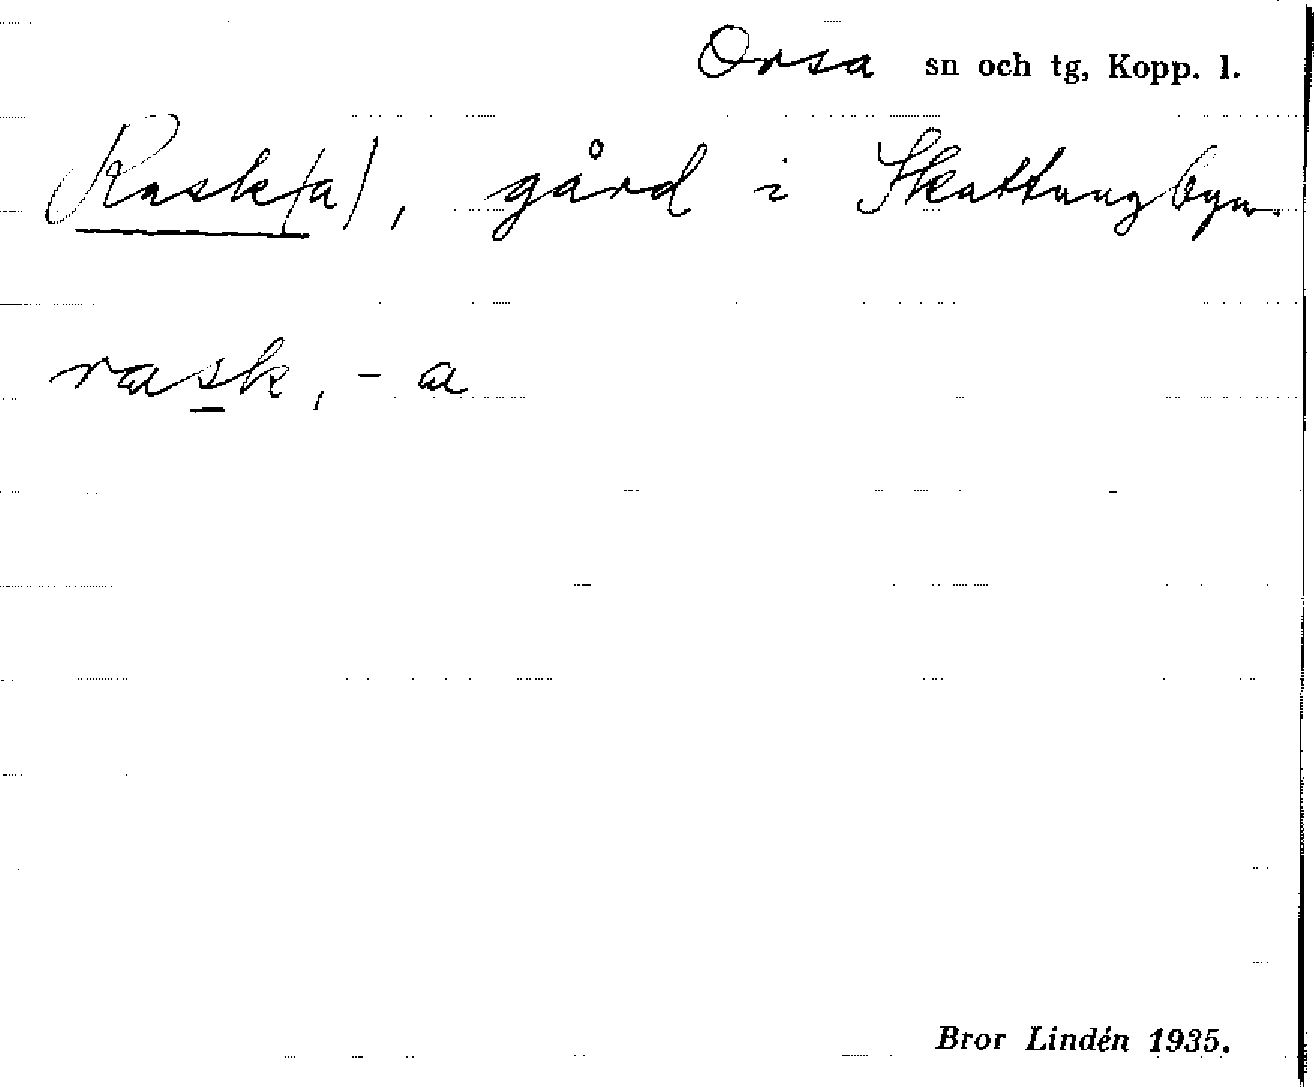 Orsa sn och tg, Kopp. l.
Rask(a), gård i Skattungbyn.
rask, - a
Bror Lindén 1935.